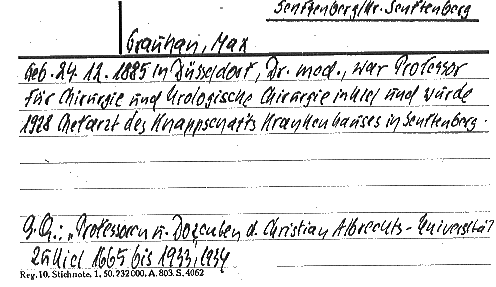 Senftenberg/Kr. Senftenberg
Grauhan, Max
Geb. 24. 12. 1885 in Düsseldorf, Dr. med., war Professor
für Chirurgie und Urologische Chirurgie in Kiel und wurde
1928 Chefarzt des Knappschafts Krankenhauses in Senftenberg.
"Professoren u. Dozenten d. Christian Albrechts-Universität
zu Kiel 1665 bis 1933, 1934
Reg. 10. Stichnote. 1. 50. 232000. A. 803. S. 4062